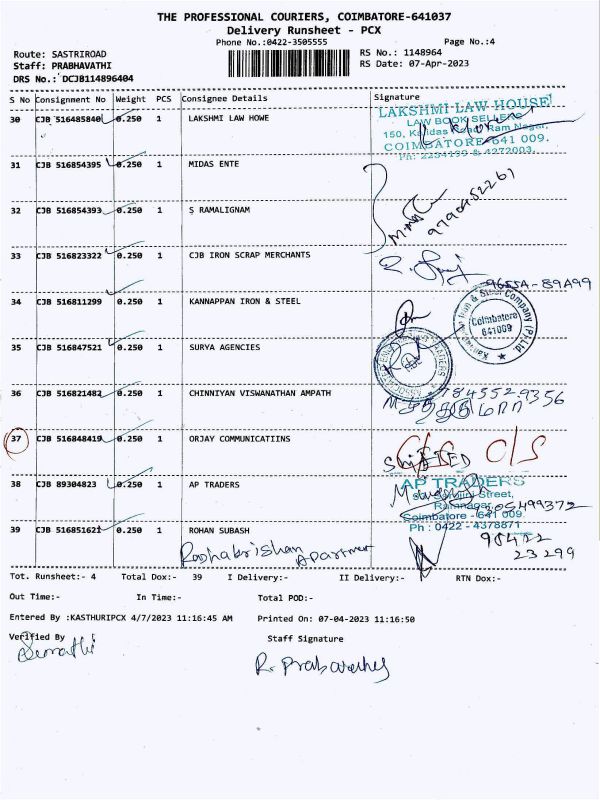 THE PROFESSIONAL COURIERS, COIMBATORE-641037
Delivery Runsheet - PCX
Phone No.:0422-3505555 Page No.:4
Route: SASTRIROAD RS No.: 1148964
Staff: PRABHAVATHI RS Date: 07-Apr-2023
DRS No.: DCJB114896404
S No Consignment No Weight PCS Consignee Details Signature
30 CJB 516485840 0.250 1 LAKSHMI LAW HOWE
LAKSHMI LAW HOUSE
LAW BOOK SELLER
150, Kalidas Road, Ram Nagar,
COIMBATORE-641 009.
31 CJB 516854395 0.250 1 MIDAS ENTE
32 CJB 516854393 0.250 1 S RAMALIGNAM
33 CJB 516823322 0.250 1 CJB IRON SCRAP MERCHANTS
34 CJB 516811299 0.250 1 KANNAPPAN IRON & STEEL
Kannappan Iron & Steel Company (P) Ltd
Coimbatore
641009
35 CJB 516847521 0.250 1 SURYA AGENCIES
36 CJB 516821482 0.250 1 CHINNIYAN VISWANATHAN AMPATH
37 CJB 516848419 0.250 1 ORJAY COMMUNICATIINS
C/S O/S
SHIFTED
38 CJB 89304823 0.250 1 AP TRADERS
AP TRADERS
Street,
Ramnagar,
Coimbatore - 641 009.
Ph : 0422 - 4378871
39 CJB 516851621 0.250 1 ROHAN SUBASH
98422
23299
Tot. Runsheet:- 4 Total Dox:- 39 I Delivery:- II Delivery:- RTN Dox:-
Out Time:- In Time:- Total POD:-
Entered By :KASTHURIPCX 4/7/2023 11:16:45 AM Printed On: 07-04-2023 11:16:50
Verified By Staff Signature